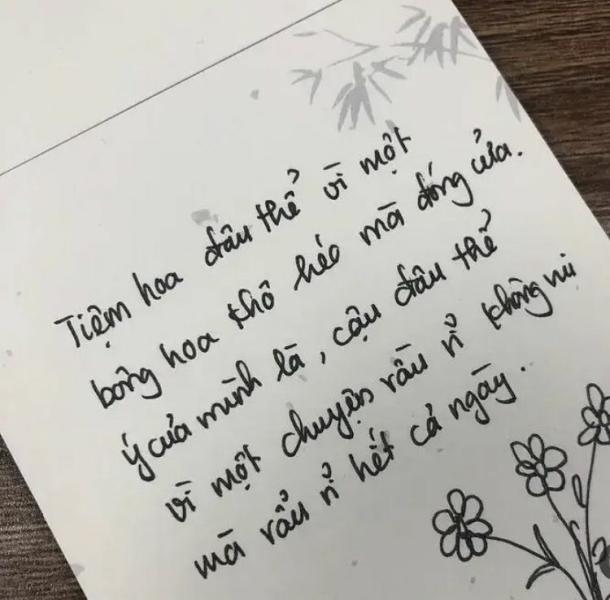 Tiệm hoa đâu thể vì một
bông hoa khô héo mà đóng cửa.
Ý của mình là, cậu đâu thể
vì một chuyện rầu rĩ không vui
mà rầu rĩ hết cả ngày..